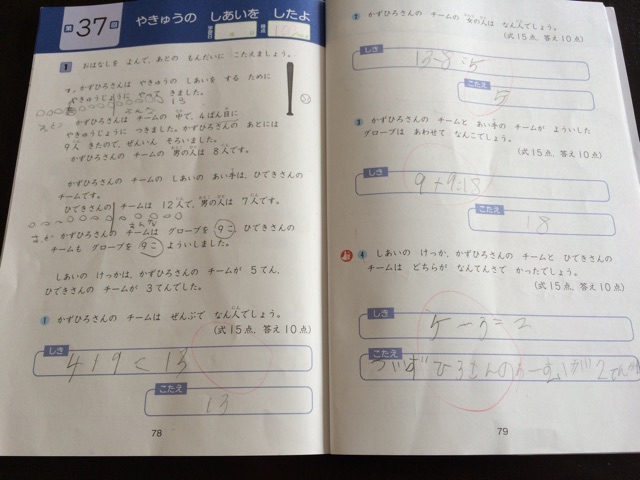 第37回 やきゅうの しあいを したよ
1 おはなしを よんで、あとの もんだいに こたえましょう。
かずひろさんは やきゅうの しあいを する ために
やきゅうじょうに やって きました。
13
かずひろさんは チームの 中で、4ばん目に
やきゅうじょうに つきました。かずひろさんの あとには
9人 きたので、ぜんいん そろいました。
かずひろさんの チームの 男の人は 8人です。
かずひろさんの チームの しあいの あい手は、ひできさんの
チームです。
ひできさんの チームは 12人で、男の人は 7人です。
かずひろさんの チームは グローブを 9こ、ひできさんの
チームも グローブを 9こ よういしました。
しあいの けっかは、かずひろさんの チームが 5てん、
ひできさんの チームが 3てんでした。
1 かずひろさんの チームは ぜんぶで なん人でしょう。
(式15点、答え10点)
しき
4+9=13
こたえ
13
78
2 かずひろさんの チームの 女の人は なん人でしょう。
(式15点、答え10点)
しき
13-8=5
こたえ
5
3 かずひろさんの チームと あい手の チームが よういした
グローブは あわせて なんこでしょう。
(式15点、答え10点)
しき
9+9=18
こたえ
18
4 しあいの けっか、かずひろさんの チームと ひできさんの
チームは どちらが なんてんさで かったでしょう。
(式15点、答え10点)
しき
5-3=2
こたえ
かずひろさんのチームが2てん
79